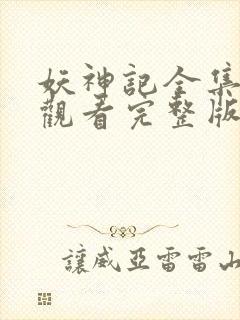 妖神記全集
觀看完整版
讓威亞雷雷山